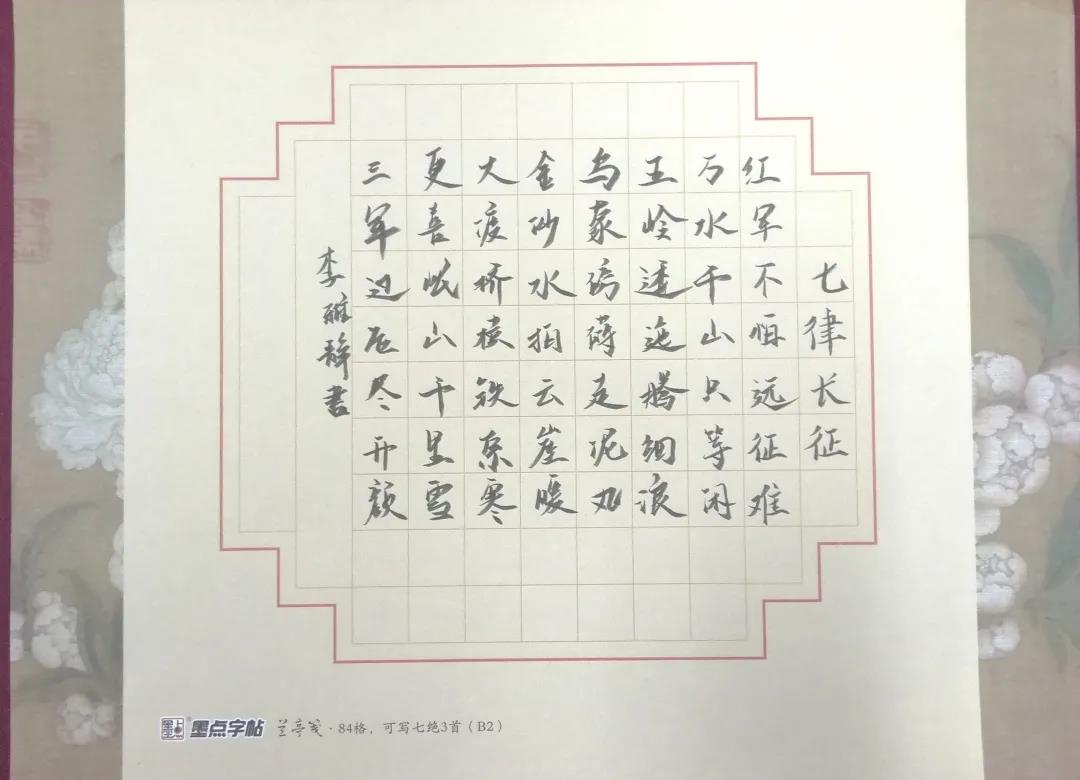 七律长征
红军不怕远征难
万水千山只等闲
五岭逶迤腾细浪
乌蒙磅礴走泥丸
金沙水拍云崖暖
大渡桥横铁索寒
更喜岷山千里雪
三军过后尽开颜
李雅书
墨点字帖 兰亭笺·84格，可写七绝3首（B2）